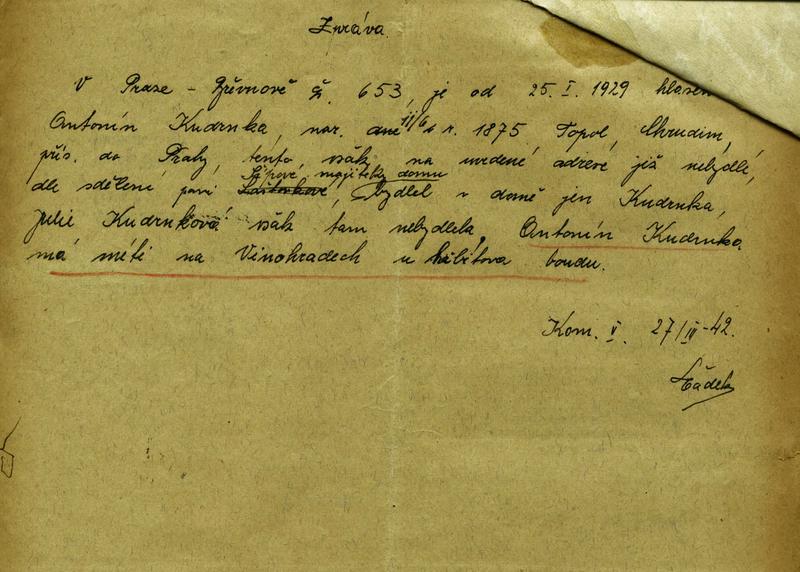 Zpráva.
V Praze - Břevnově čp. 653, je od 25. I. 1929 hlášen
Antonín Kudrnka, nar. dne 11/6 r. 1875 Topol, Chrudim,
přís. do Prahy, tento však na uvedené adrese již nebydlí,
Šípové, majitelky domu
dle sdělení paní, bydlel v domě jen Kudrnka,
Julie Kudrnková však tam nebydlela. Antonín Kudrnka
má míti na Vinohradech u hřbitova boudu.
Kom. V. 27/III-42.